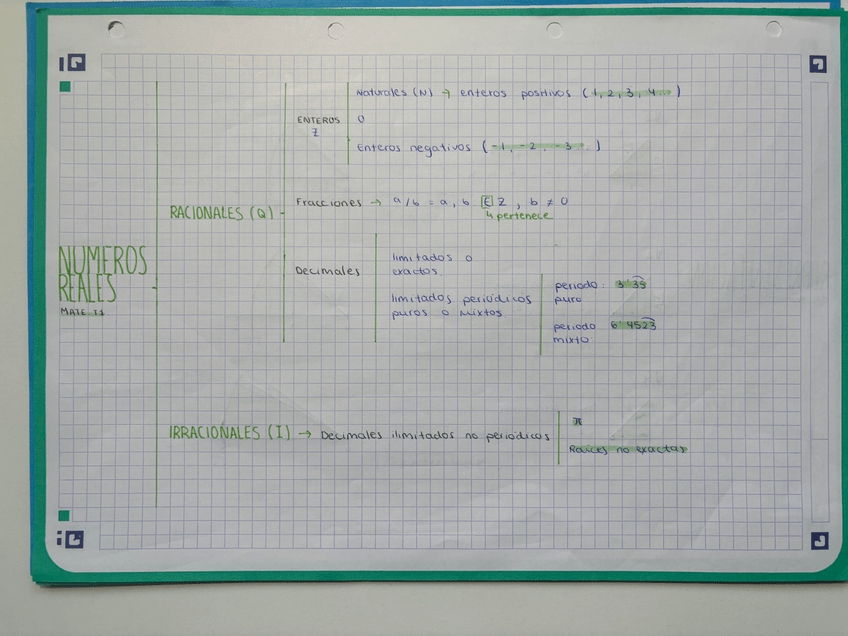 Naturales (N) → enteros positivos (1, 2, 3, 4...)
ENTEROS
Z
0
Enteros negativos (-1, -2, -3...)
RACIONALES (Q)
Fracciones → a/b = a, b E Z, b ≠ 0
↳ pertenece
NUMEROS
REALES
MATE T1
Decimales
limitados o
exactos
limitados periódicos
puros o mixtos
periodo: 3'35
puro
periodo 6'4523
mixto
IRRACIONALES (I) → Decimales ilimitados no periódicos
π
Raíces no exactas